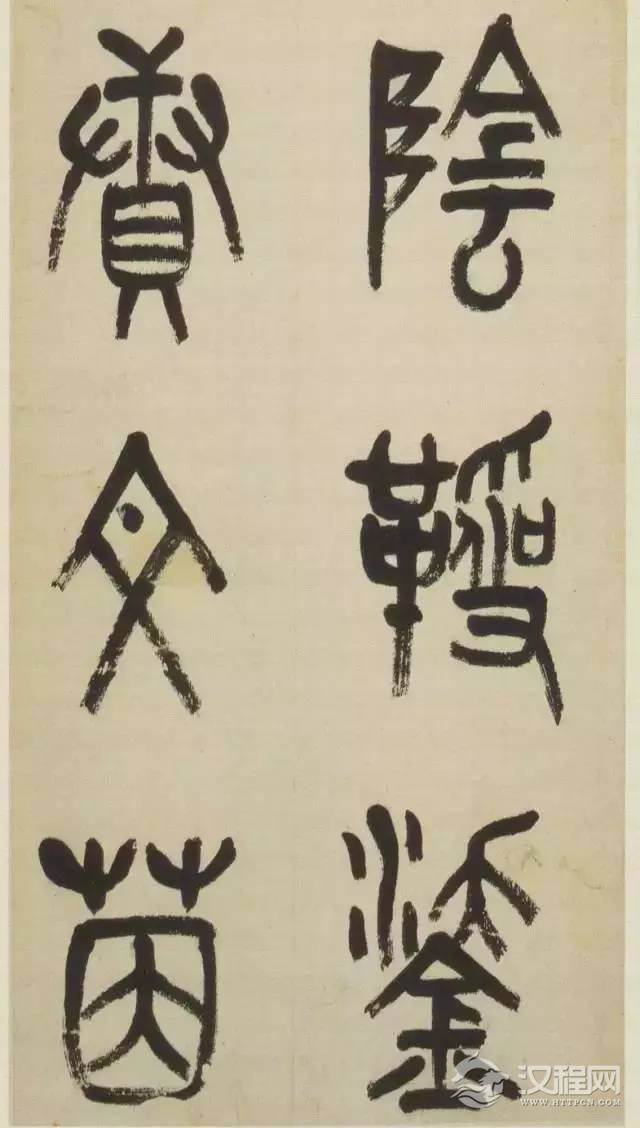 陰靷鋈
賡文茵
汉程网
WWW.HTTPCN.COM